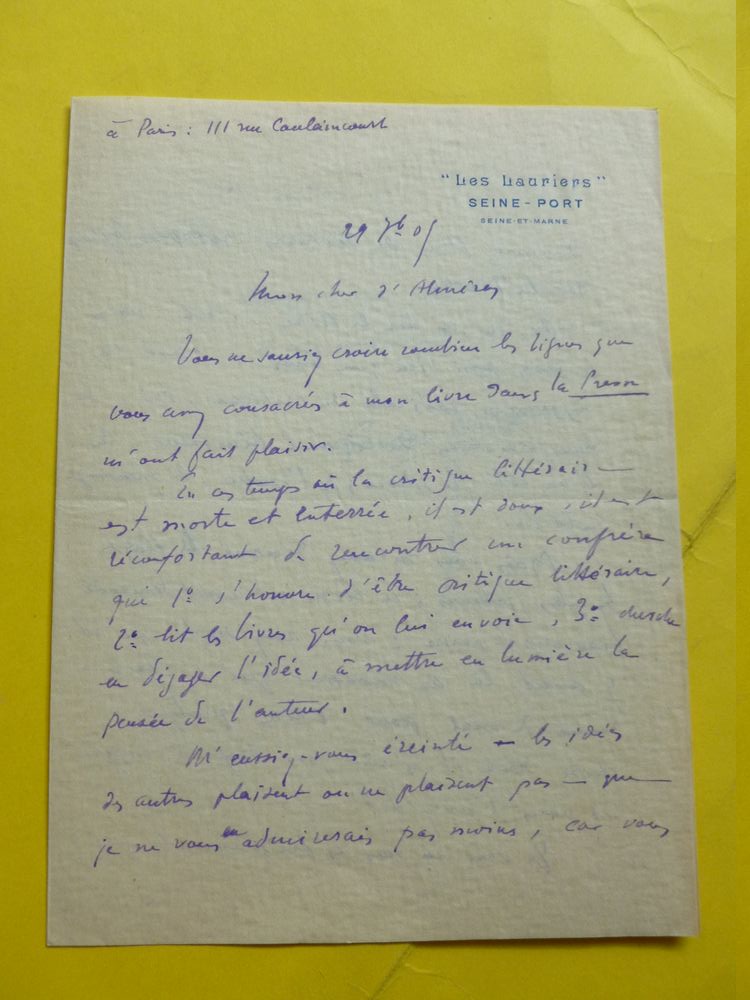 à Paris : 111 rue Caulaincourt
"Les Lauriers"
SEINE-PORT
SEINE-ET-MARNE
29 7b 05
Mon cher d'Alméras
Vous ne sauriez croire combien les lignes que
vous avez consacrés à mon livre dans la Presse
m'ont fait plaisir.
En ces temps où la critique littéraire
est morte et enterrée, il est doux, il est
réconfortant de rencontrer un confrère
qui 1º s'honore d'être critique littéraire,
2º lit les livres qu'on lui envoie, 3º cherche
en dégager l'idée, à mettre en lumière la
pensée de l'auteur.
M'eussiez-vous éreinté – les idées
des autres plaisent ou ne plaisent pas – que
je ne vous en admirerais pas moins, car vous